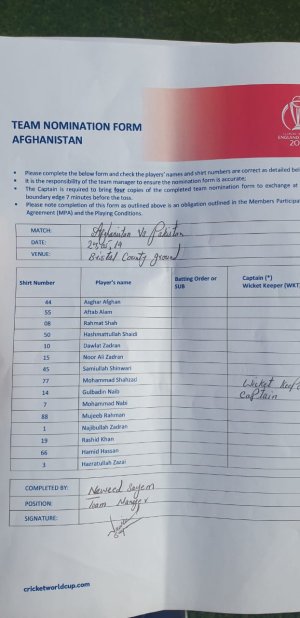 TEAM NOMINATION FORM
AFGHANISTAN
Please complete the below form and check the players' names and shirt numbers are correct as detailed
It is the responsibility of the team manager to ensure the nomination form is accurate;
The Captain is required to bring four copies of the completed team nomination form to exchange at
boundary edge 7 minutes before the toss.
Please note completion of this form as outlined above is an obligation outlined in the Members
Agreement (MPA) and the Playing Conditions.
MATCH: Afghanistan Vs Pakistan
DATE:
VENUE: Bristol County ground
Shirt Number Player's name Batting Order or SUB Captain (*) Wicket Keeper
44 Asghar Afghan
55 Aftab Alam
08 Rahmat Shah
50 Hashmatullah Shaidi
10 Dawlat Zadran
15 Noor Ali Zadran
45 Samiullah Shinwari
77 Mohammad Shahzad Wicket
14 Gulbadin Naib Captain
7 Mohammad Nabi
88 Mujeeb Rahman
1 Najibullah Zadran
19 Rashid Khan
66 Hamid Hassan
3 Hazratullah Zazai
COMPLETED BY: Naweed Sayem
POSITION: Team Manager
SIGNATURE:
cricketworldcup.com